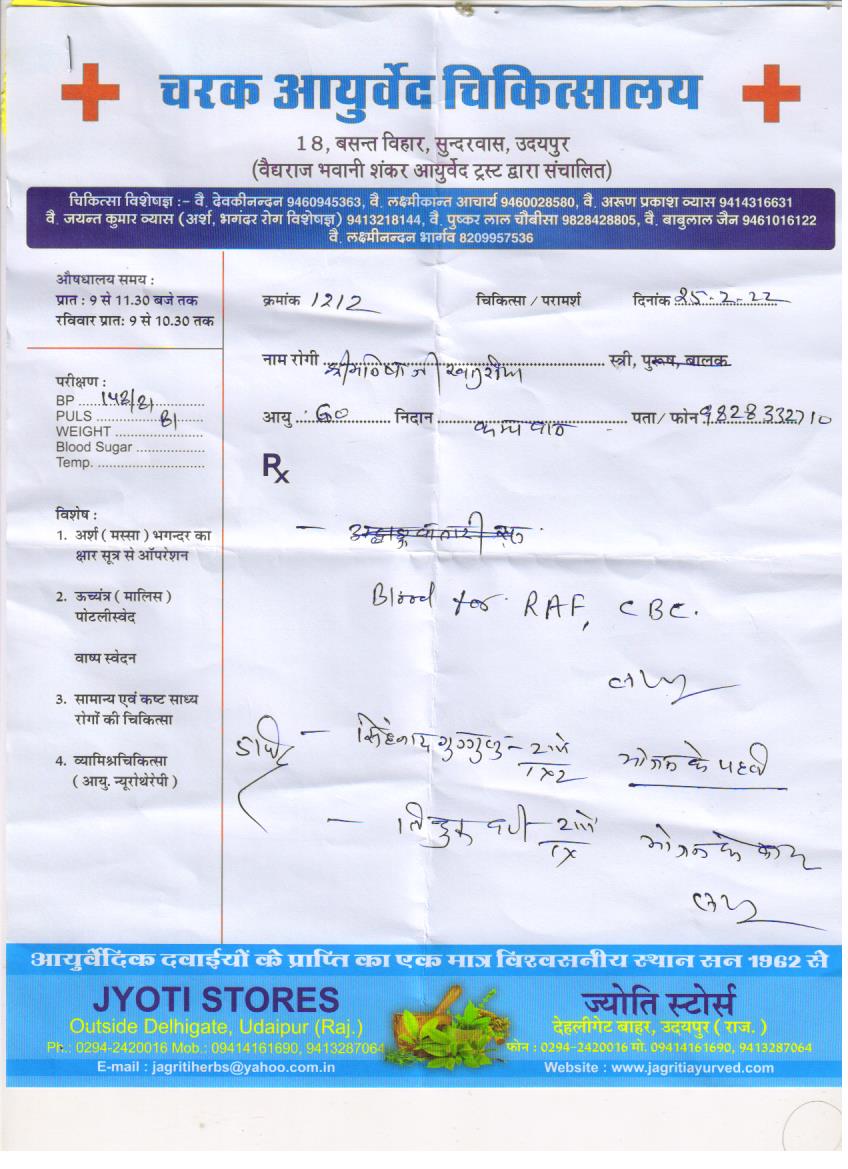 चरक आयुर्वेद चिकित्सालय
18, बसन्त विहार, सुन्दरवास, उदयपुर
(वैद्यराज भवानी शंकर आयुर्वेद ट्रस्ट द्वारा संचालित)
चिकित्सा विशेषज्ञ :- वै. देवकीनन्दन 9460945363, वै. लक्ष्मीकान्त आचार्य 9460028580, वै. अरूण प्रकाश व्यास 9414316631
वै. जयन्त कुमार व्यास (अर्श, भगंदर रोग विशेषज्ञ) 9413218144, वै. पुष्कर लाल चौबीसा 9828428805, वै. बाबुलाल जैन 9461016122
वै. लक्ष्मीनन्दन भार्गव 8209957536
औषधालय समय :
प्रात : 9 से 11.30 बजे तक
रविवार प्रातः 9 से 10.30 तक
क्रमांक 1212 चिकित्सा / परामर्श दिनांक 25-2-22
नाम रोगी स्त्री, पुरूष, बालक
आयु : 60 निदान पता/ फोन 9828332710
परीक्षण :
BP 142/81
PULS 81
WEIGHT
Blood Sugar
Temp.
Rx
विशेष :
1. अर्श ( मस्सा ) भगन्दर का
क्षार सूत्र से ऑपरेशन
2. ऊच्यंत्र ( मालिस )
पोटलीस्वेद
वाष्प स्वेदन
3. सामान्य एवं कष्ट साध्य
रोगों की चिकित्सा
4. व्यामिश्रचिकित्सा
( आयु. न्यूरोथेरेपी )
Blood for RAF, CBC.
सिंहनाद गुग्गुलु - 2 गो 1x2 भोजन के पहले
2 गो 1x भोजन के बाद
आयुर्वेदिक दवाईयों के प्राप्ति का एक मात्र विश्वसनीय स्थान सन 1962 से
JYOTI STORES
Outside Delhigate, Udaipur (Raj.)
Ph.: 0294-2420016 Mob.: 09414161690, 9413287064
E-mail : jagritiherbs@yahoo.com.in
ज्योति स्टोर्स
देहलीगेट बाहर, उदयपुर ( राज. )
फोन : 0294-2420016 मो. 09414161690, 9413287064
Website : www.jagritiayurved.com